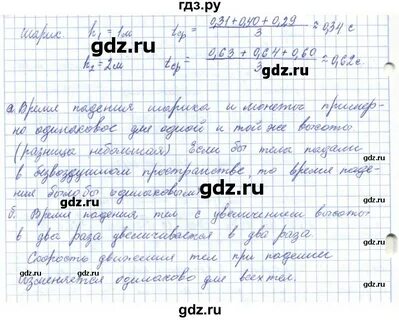 гдз.ру
Шарик h₁ = 1м tср = (0,31+0,40+0,29)/3 ≈ 0,34 с
h₂ = 2м tср = (0,63 + 0,64 + 0,60)/3 ≈ 0,62с.
а. Время падения шарика и монеты пример-
но одинаковое для одной и той же высоты
(разница небольшая) Если бы тела падали
в безвоздушном пространстве, то время паде-
ния было бы одинаковым
б. Время падения тел с увеличением высоты
в два раза увеличивается в два раза.
Скорость движения тел при падении
изменяется одинаково для всех тел.
gdz.ru
gdz.ru
gdz.ru
gdz.ru
gdz.ru
gdz.ru
gdz.ru
gdz.ru